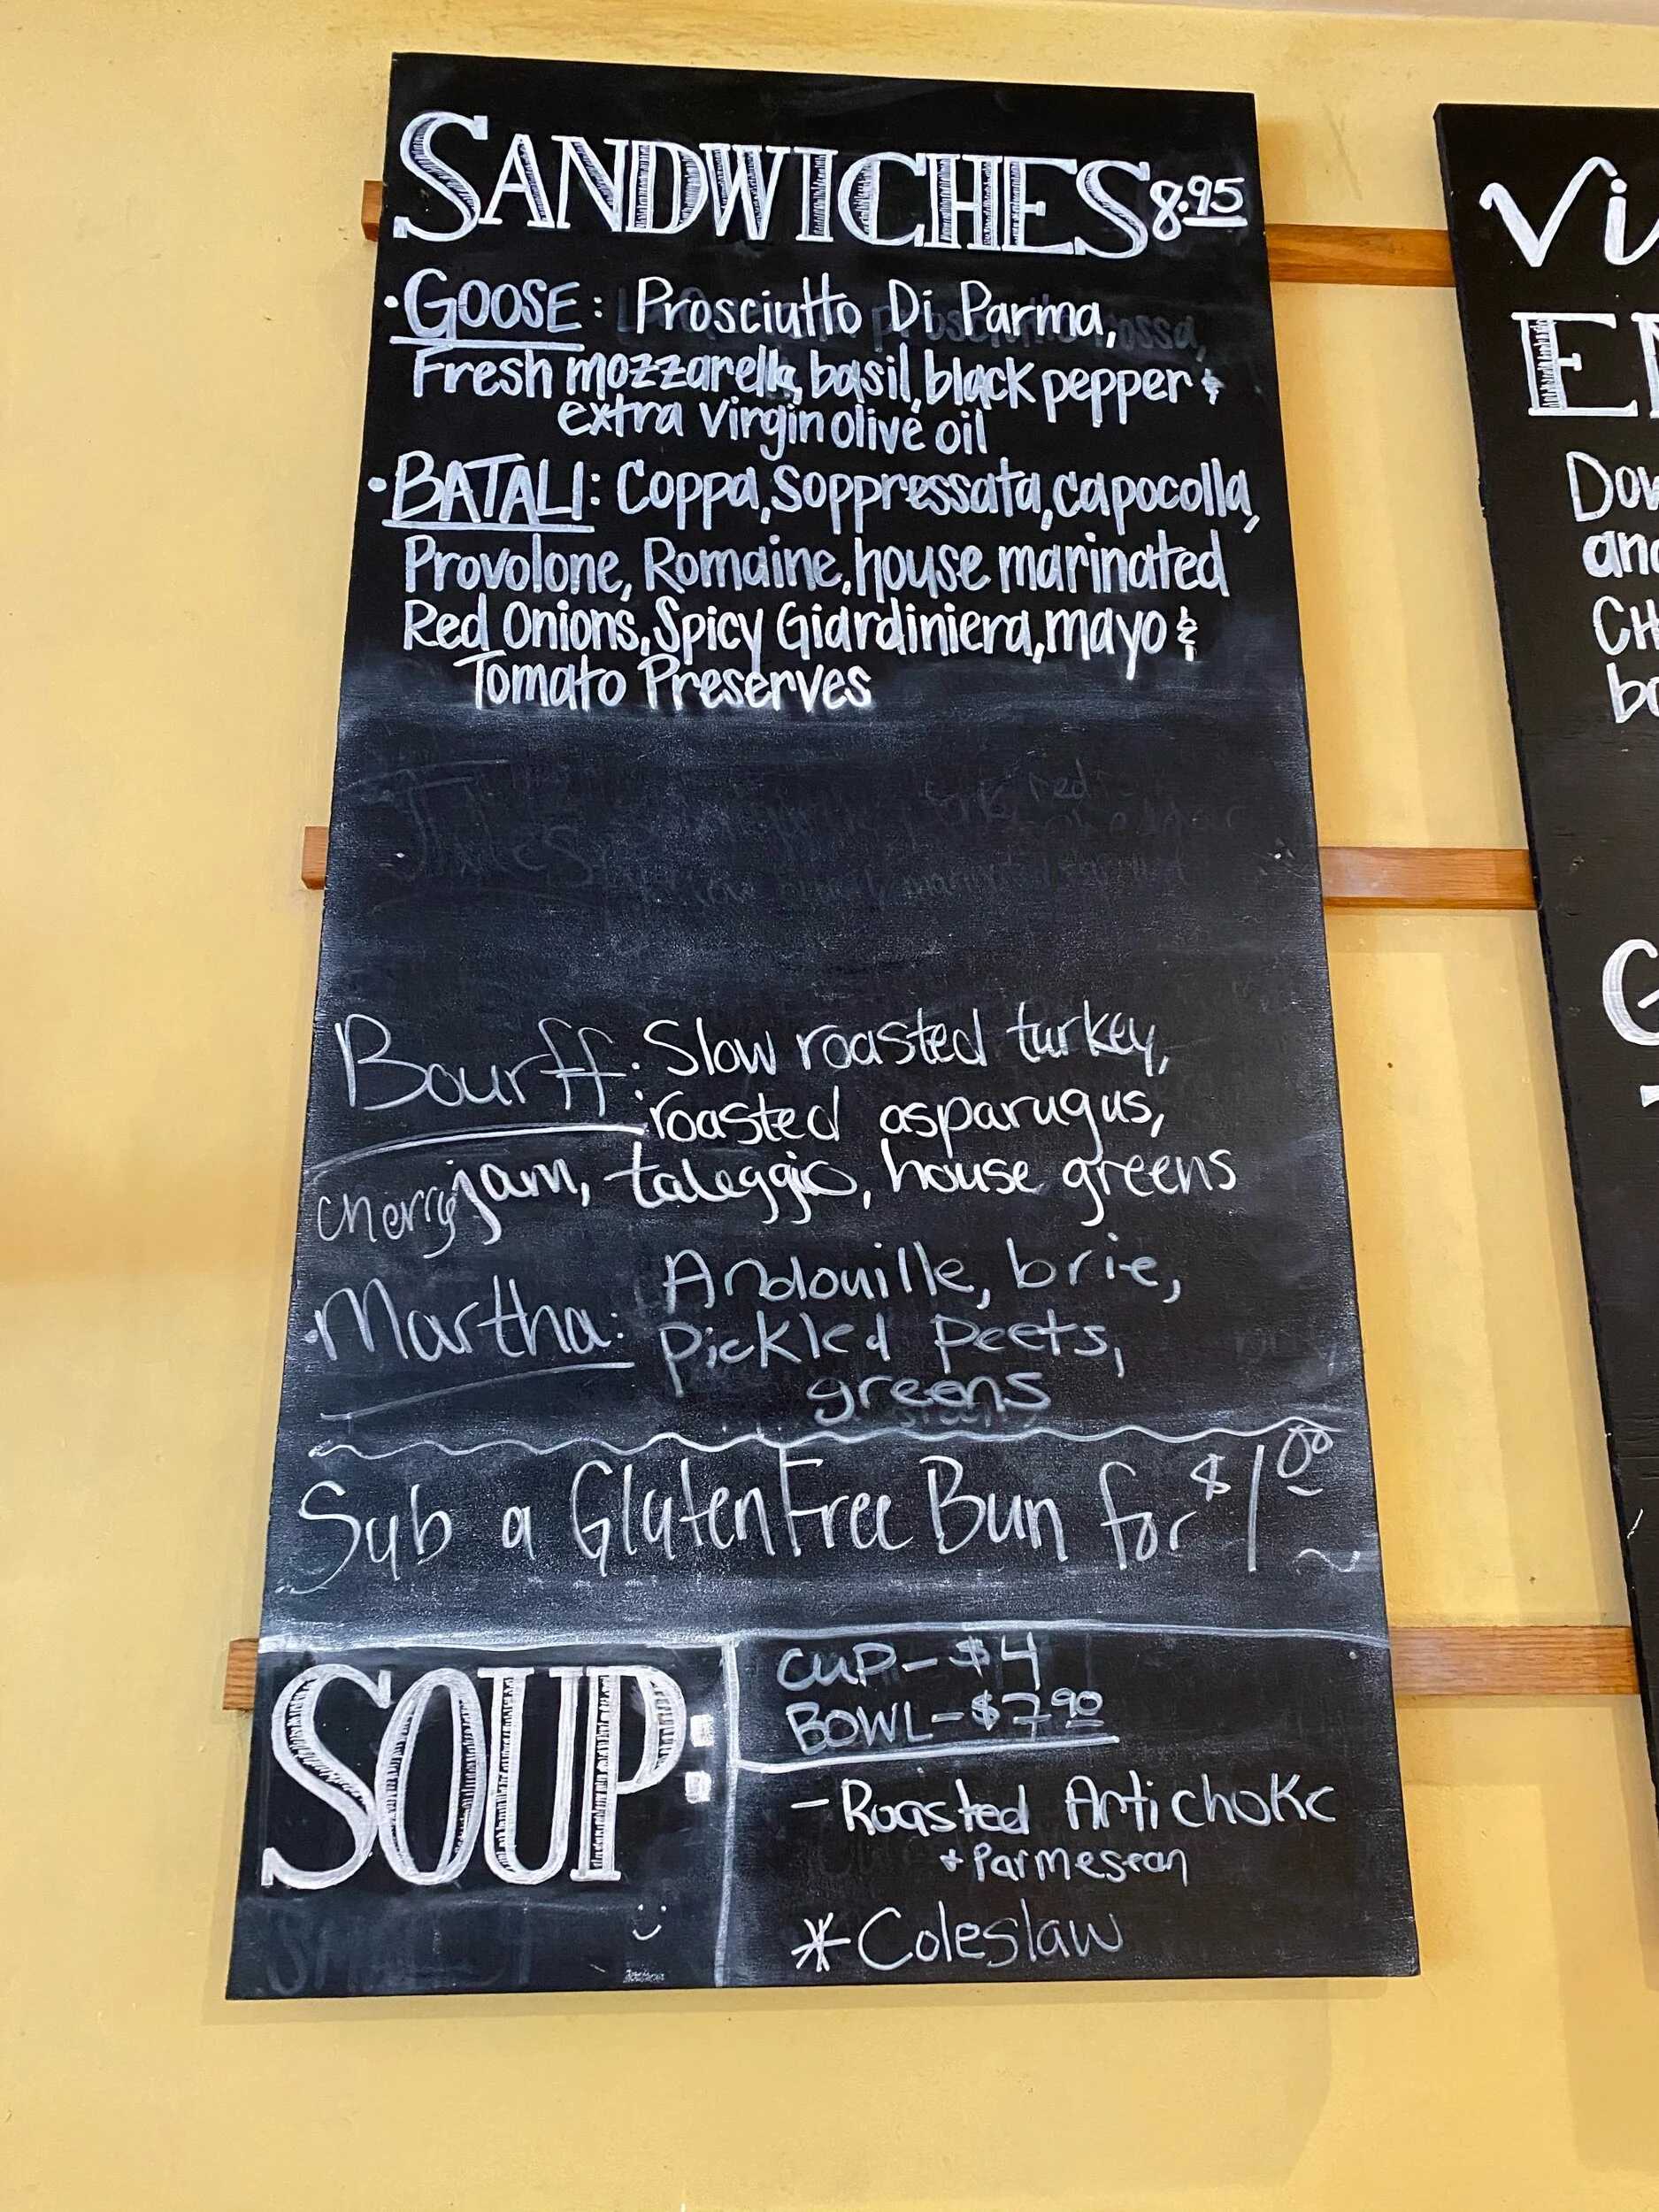 SANDWICHES 8.95
• GOOSE: Prosciutto Di Parma,
Fresh mozzarella, basil, black pepper &
extra virgin olive oil
• BATALI: Coppa, Soppressata, capocolla,
Provolone, Romaine, house marinated
Red Onions, Spicy Giardiniera, mayo &
Tomato Preserves
Bourff: Slow roasted turkey,
roasted asparugus,
cherry jam, taleggio, house greens
• Martha: Andouille, brie,
Pickled Peets,
greens
Sub a Gluten Free Bun for $1.00
SOUP:
CUP - $4
BOWL - $7.90
- Roasted Artichoke
+ Parmesean
* Coleslaw
Vi
E
Dow
and
CH
bo
G